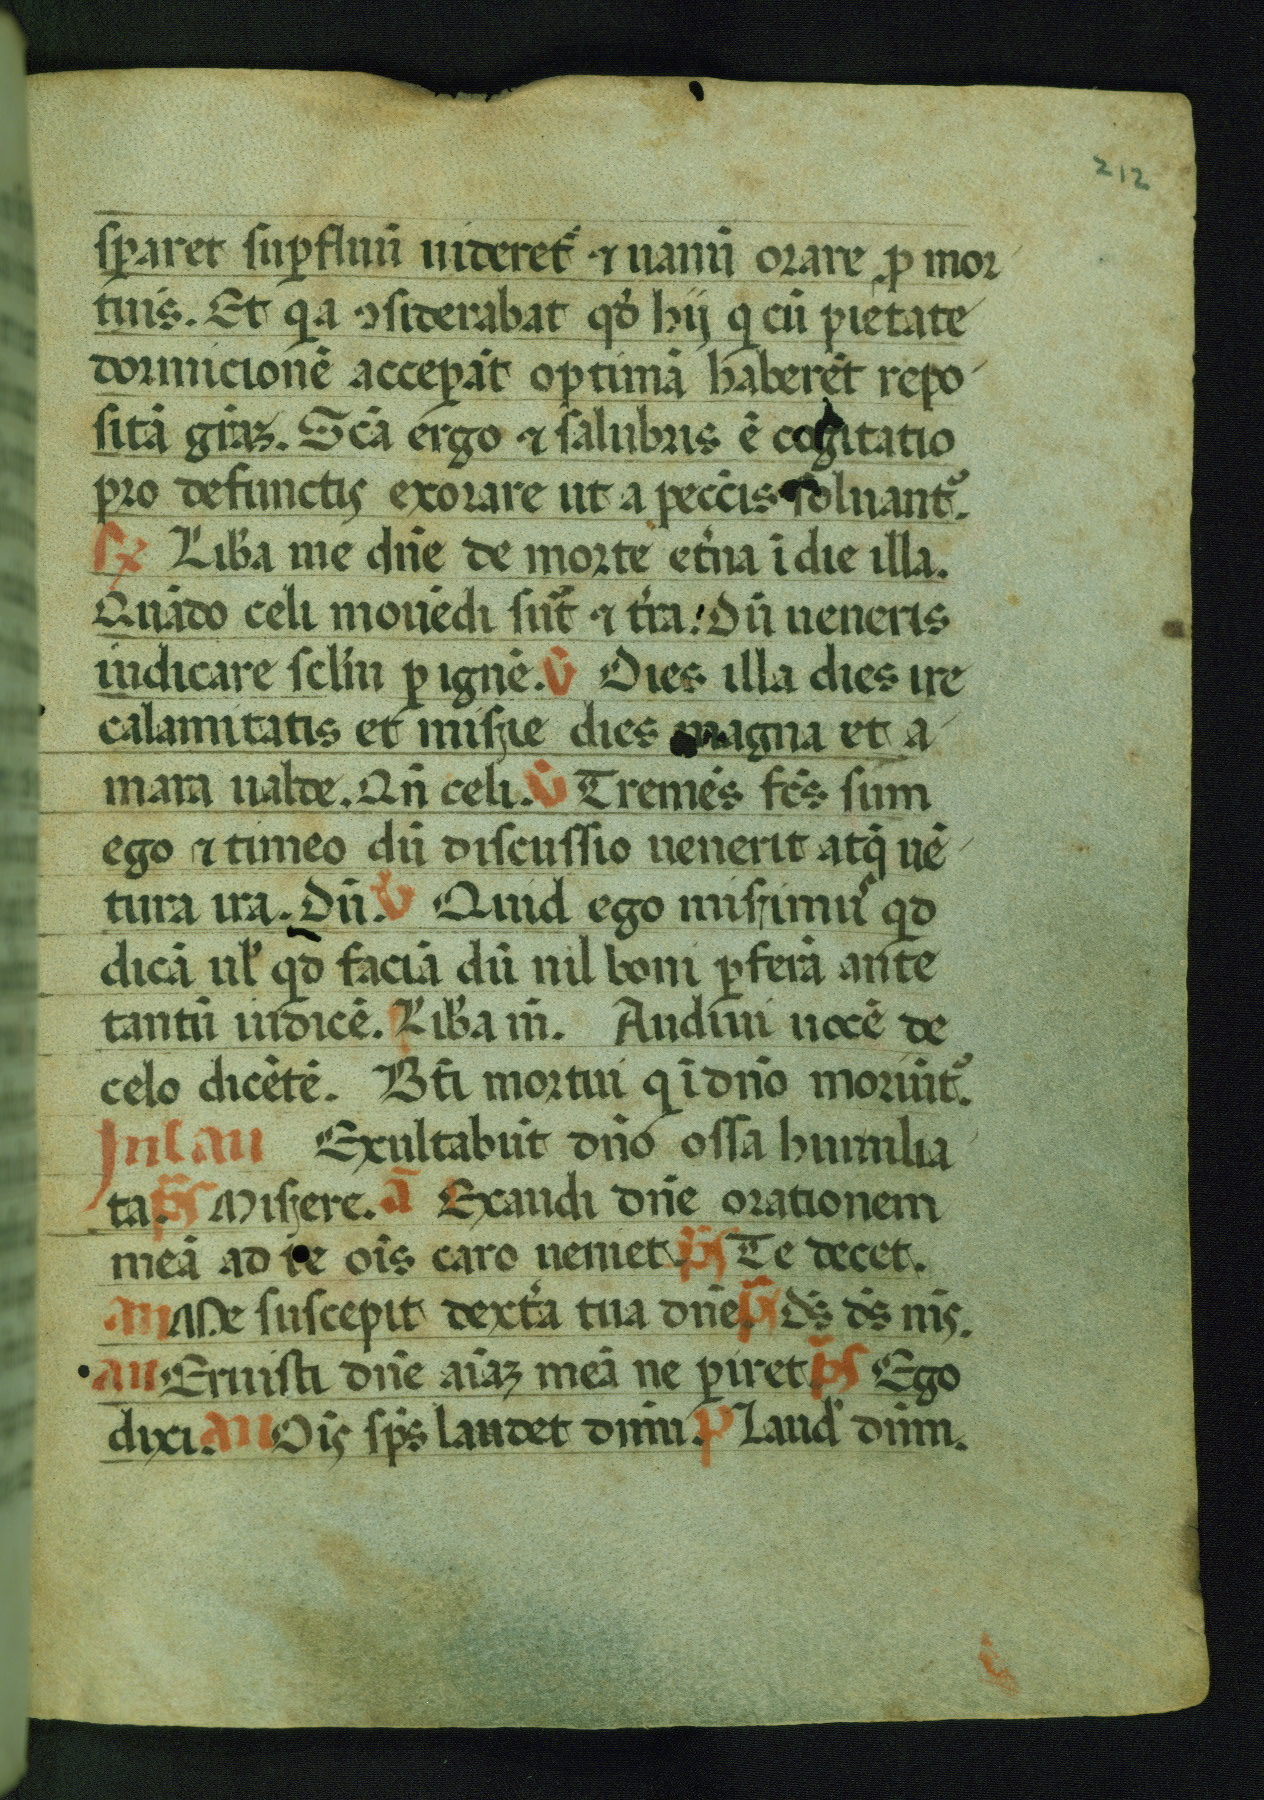 212
sꝑaret suꝑfluū uideret᷑ ⁊ uanū orare ꝓ mor
tuis. Et qa ꝯsiderabat qḋ hij q cū pietate
dormicionē acceꝑāt optimā haberēt repo
sitā grāꝫ. Scā ergo ⁊ salubris ē cogitatio
pro defunctis exorare ut a pecc̄is soluant᷑.
℟ Liƀa me dn̄e de morte et̄na ī die illa.
Quādo celi mouēdi sūt ⁊ t̄ra! Dū ueneris
iudicare sc̄lm ꝑ ignē. ℣ Dies illa dies ire
calamitatis et mis̄ie dies magna et a
mara ualde. Qn̄ celi. ℣ Tremēs fc̄s sum
ego ⁊ timeo dū discussio uenerit atq̄ uē
tura ira. Dū. ℣ Quid ego mis̄imꝰ qd
dicā ul̓ qd faciā dū nil boni ꝑferā ante
tantū iudicē. Liƀa m̄. Audiui uocē de
celo dicētē. Bt̄i mortui q ī dn̄o moriūt᷑.
In lau Exultabūt dn̄o ossa humilia
ta. p̄s Mis̄ere. ā Exaudi dn̄e orationem
meā ad te oīs caro ueniet. p̄s Te decet.
an Me suscepit dext̄a tua dn̄e. p̄s Ds̄ ds̄ nīs.
an Eruisti dn̄e aīaꝫ meā ne ꝑiret p̄s Ego
dixi. an Oīs sp̄s laudet dnm̄. p Laud̓ dnm̄.